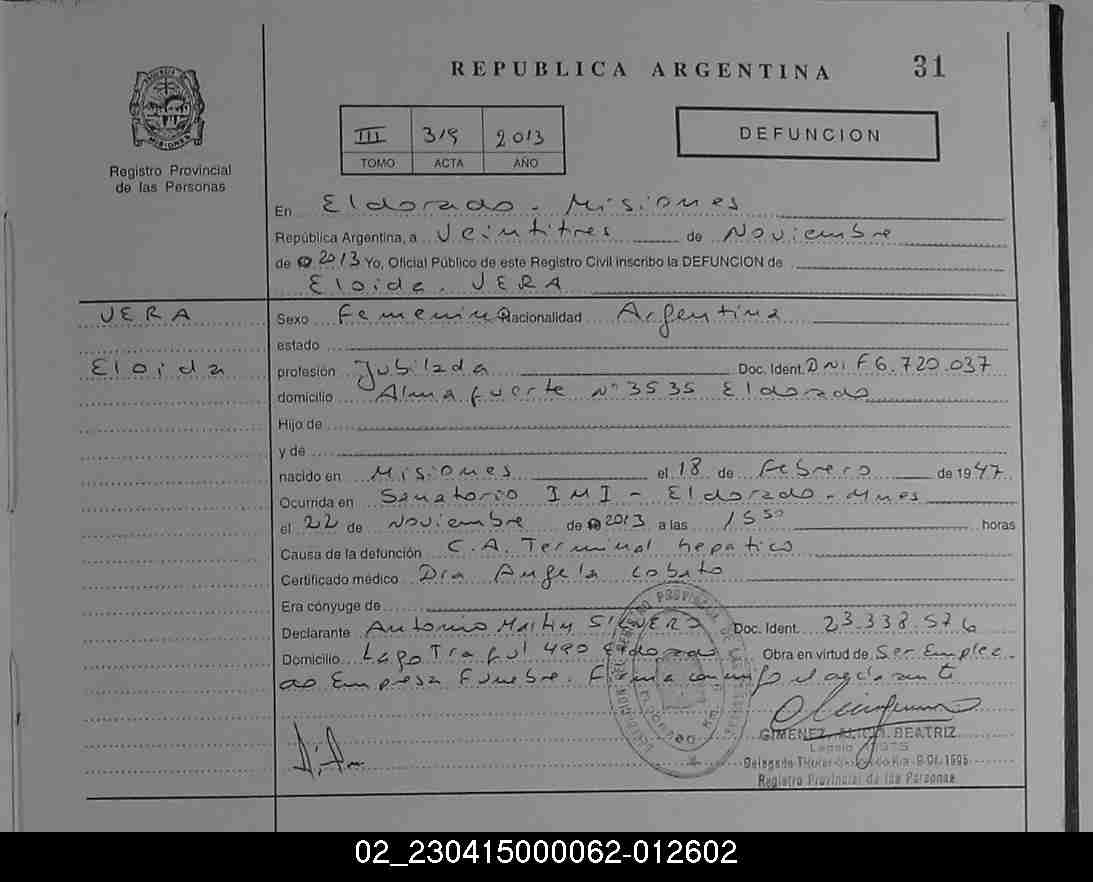 REPUBLICA ARGENTINA 31
III 319 2013
TOMO ACTA AÑO
DEFUNCION
Registro Provincial
de las Personas
En Eldorado - Misiones
República Argentina, a Veintitres de Noviembre
de 2013 Yo, Oficial Público de este Registro Civil inscribo la DEFUNCION de
Eloida VERA
VERA
Eloida
Sexo Femenino Nacionalidad Argentina
estado
profesión Jubilada Doc. Ident. DNI F6.720.037
domicilio Almafuerte N° 3535 Eldorado
Hijo de
y de
nacido en Misiones el 18 de Febrero de 1947
Ocurrida en Sanatorio IMI - Eldorado - Mnes
el 22 de Noviembre de 2013 a las 15 50 horas
Causa de la defunción C.A. Terminal hepatico
Certificado médico Dra Angela Lobato
Era cónyuge de
Declarante Antonio Martin Doc. Ident. 23.338.576
Domicilio Lago Traful 490 Eldorado Obra en virtud de Ser Emplea-
do Empresa Funebre. Firma conmigo el
GIMENEZ, ALICIA BEATRIZ
Registro Provincial de las Personas
02_230415000062-012602